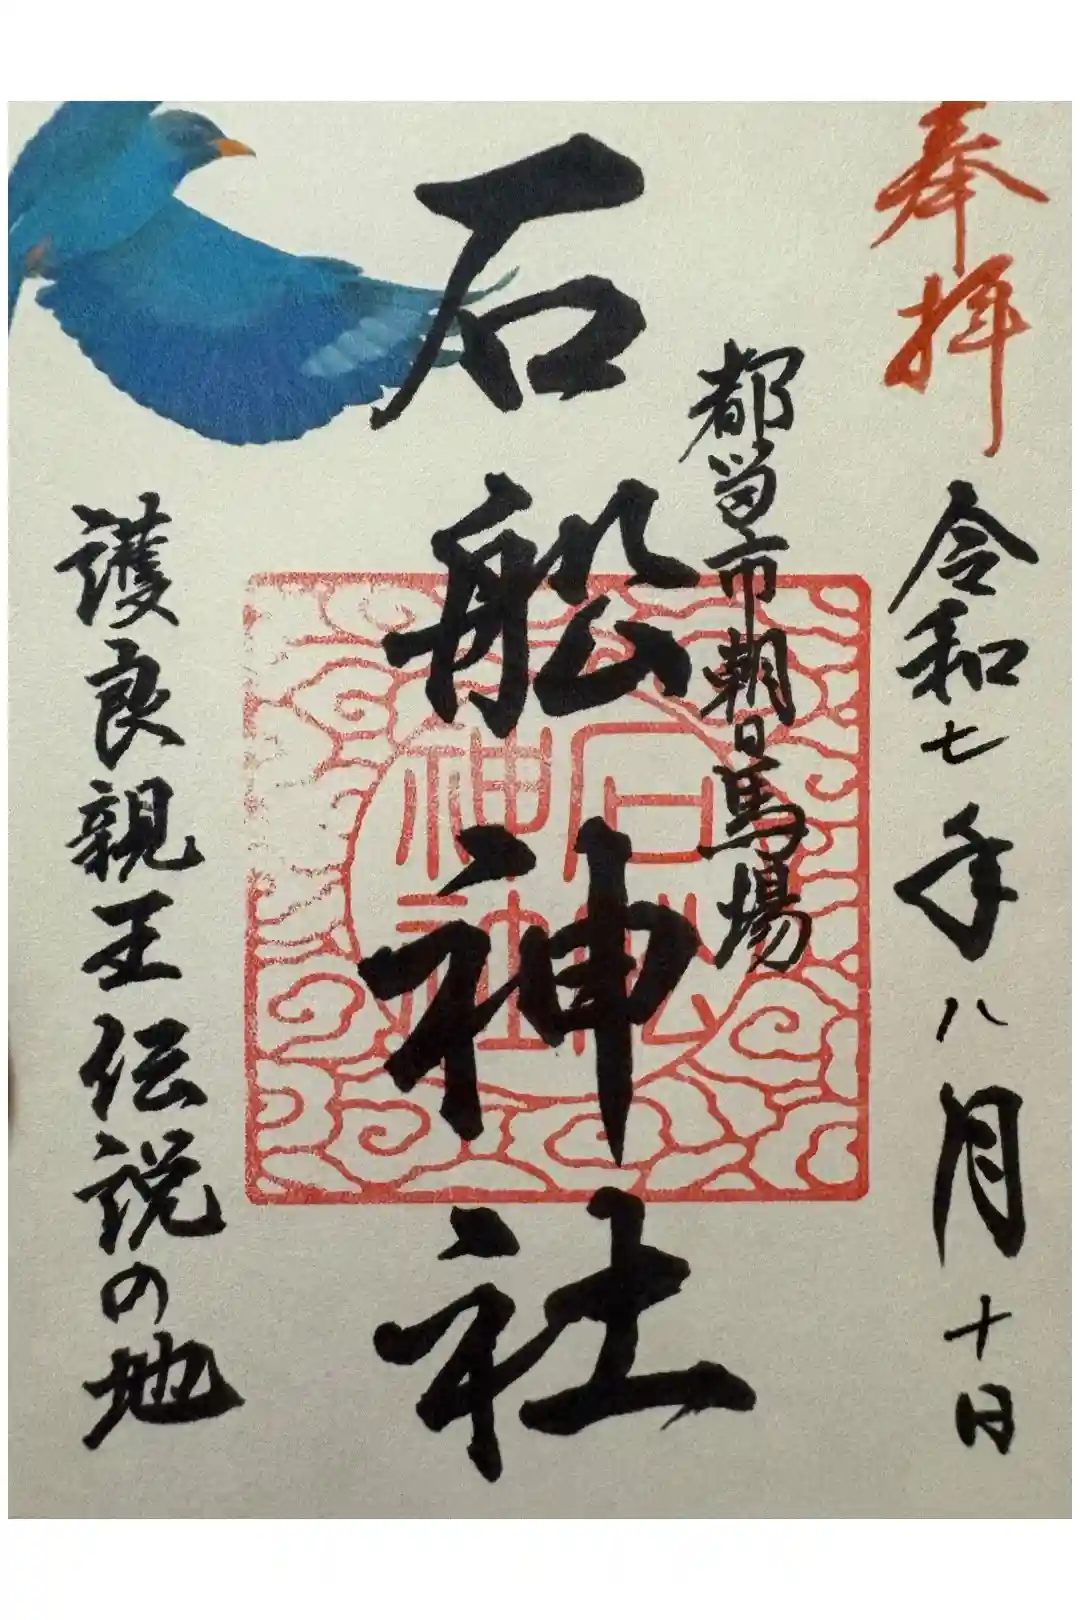 奉拝
令和七年八月十日
都留市朝日馬場
石船神社
石船神社
護良親王伝説の地